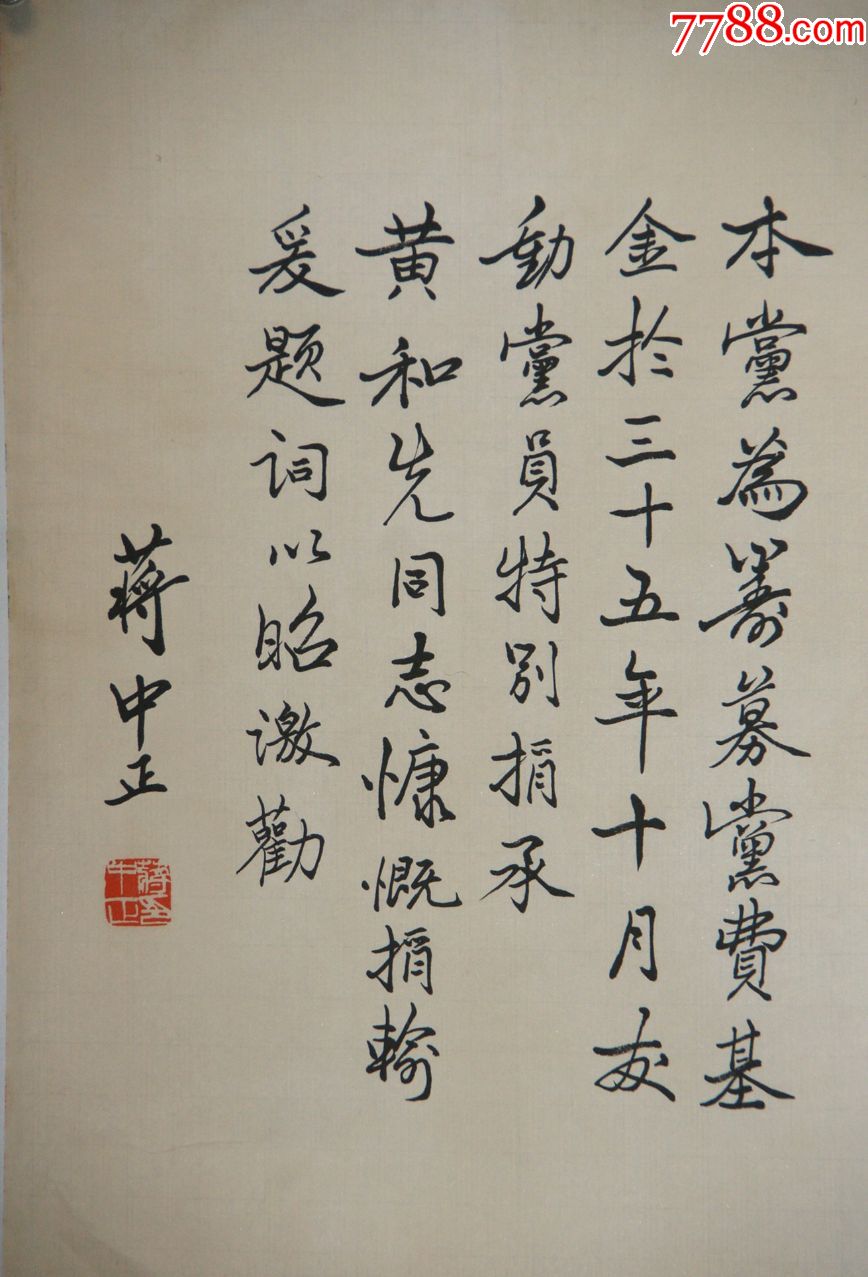 7788.com
本黨為籌募黨費基
金於三十五年十月发
動黨員特别捐承
黄和先同志慷慨捐輸
爰题詞以昭激勸
蔣中正
蔣中正印